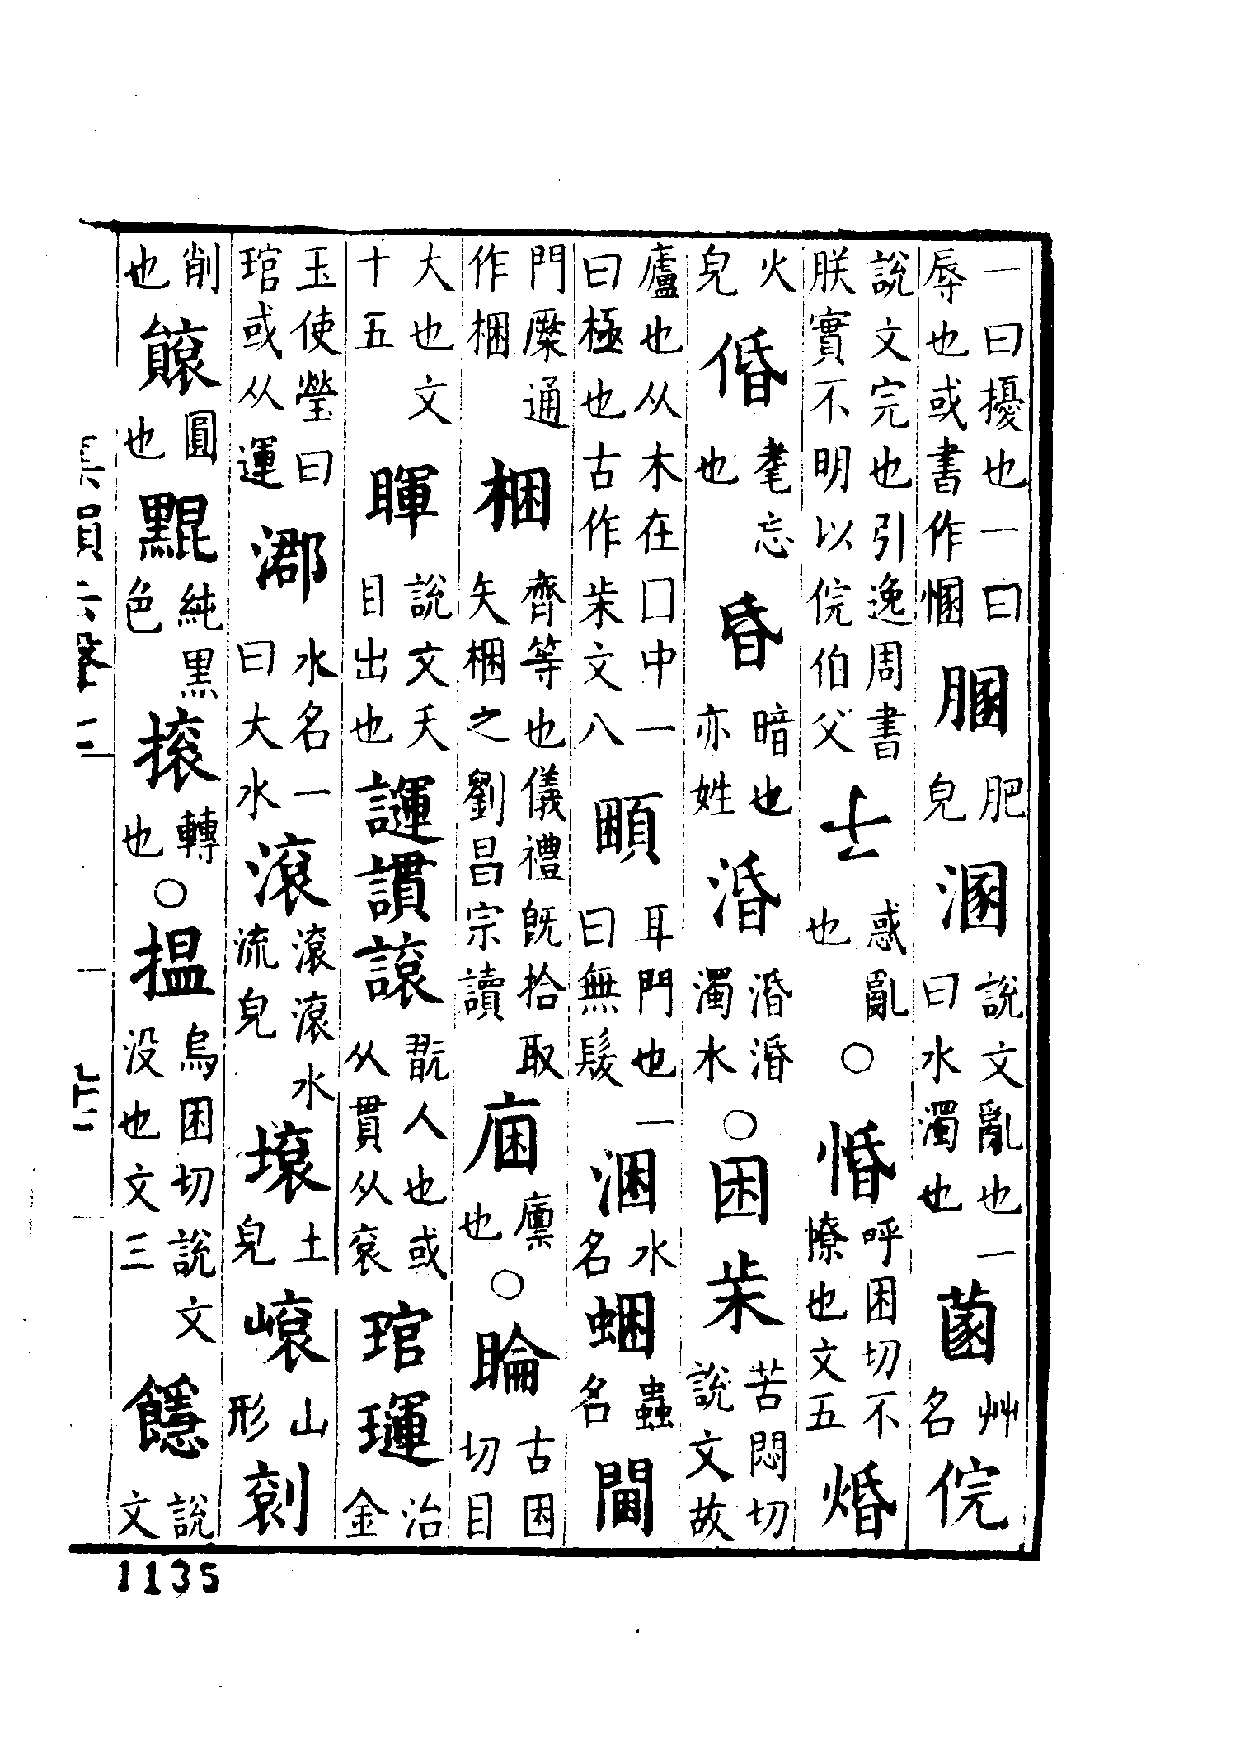 一曰擾也一曰辱也或書作慖䐊肥皃溷說文亂也一曰水濁也艸名俒
說文完也引逸周書朕實不明以俒伯父惑亂也○惽呼困切不憭也文五焝
火皃耄忘也昬暗也亦姓涽涽涽濁水○困朱苦悶切說文故
廬也从木在囗中一曰極也古作朱文八耳門也一曰無髮涃水名蟲名閫
門橜通作梱梱齊等也儀禮既拾取矢梱之劉昌宗讀廩也○睔古困切目
大也文十五暉說文大目出也翫人也或从貫从袞琯璭治金
玉使瑩曰琯或从運水名一曰大水滾滾滾水流皃土皃山形
削也圓也純黑色轉也○搵烏困切說文没也文三說文
集韻六聲二
1135